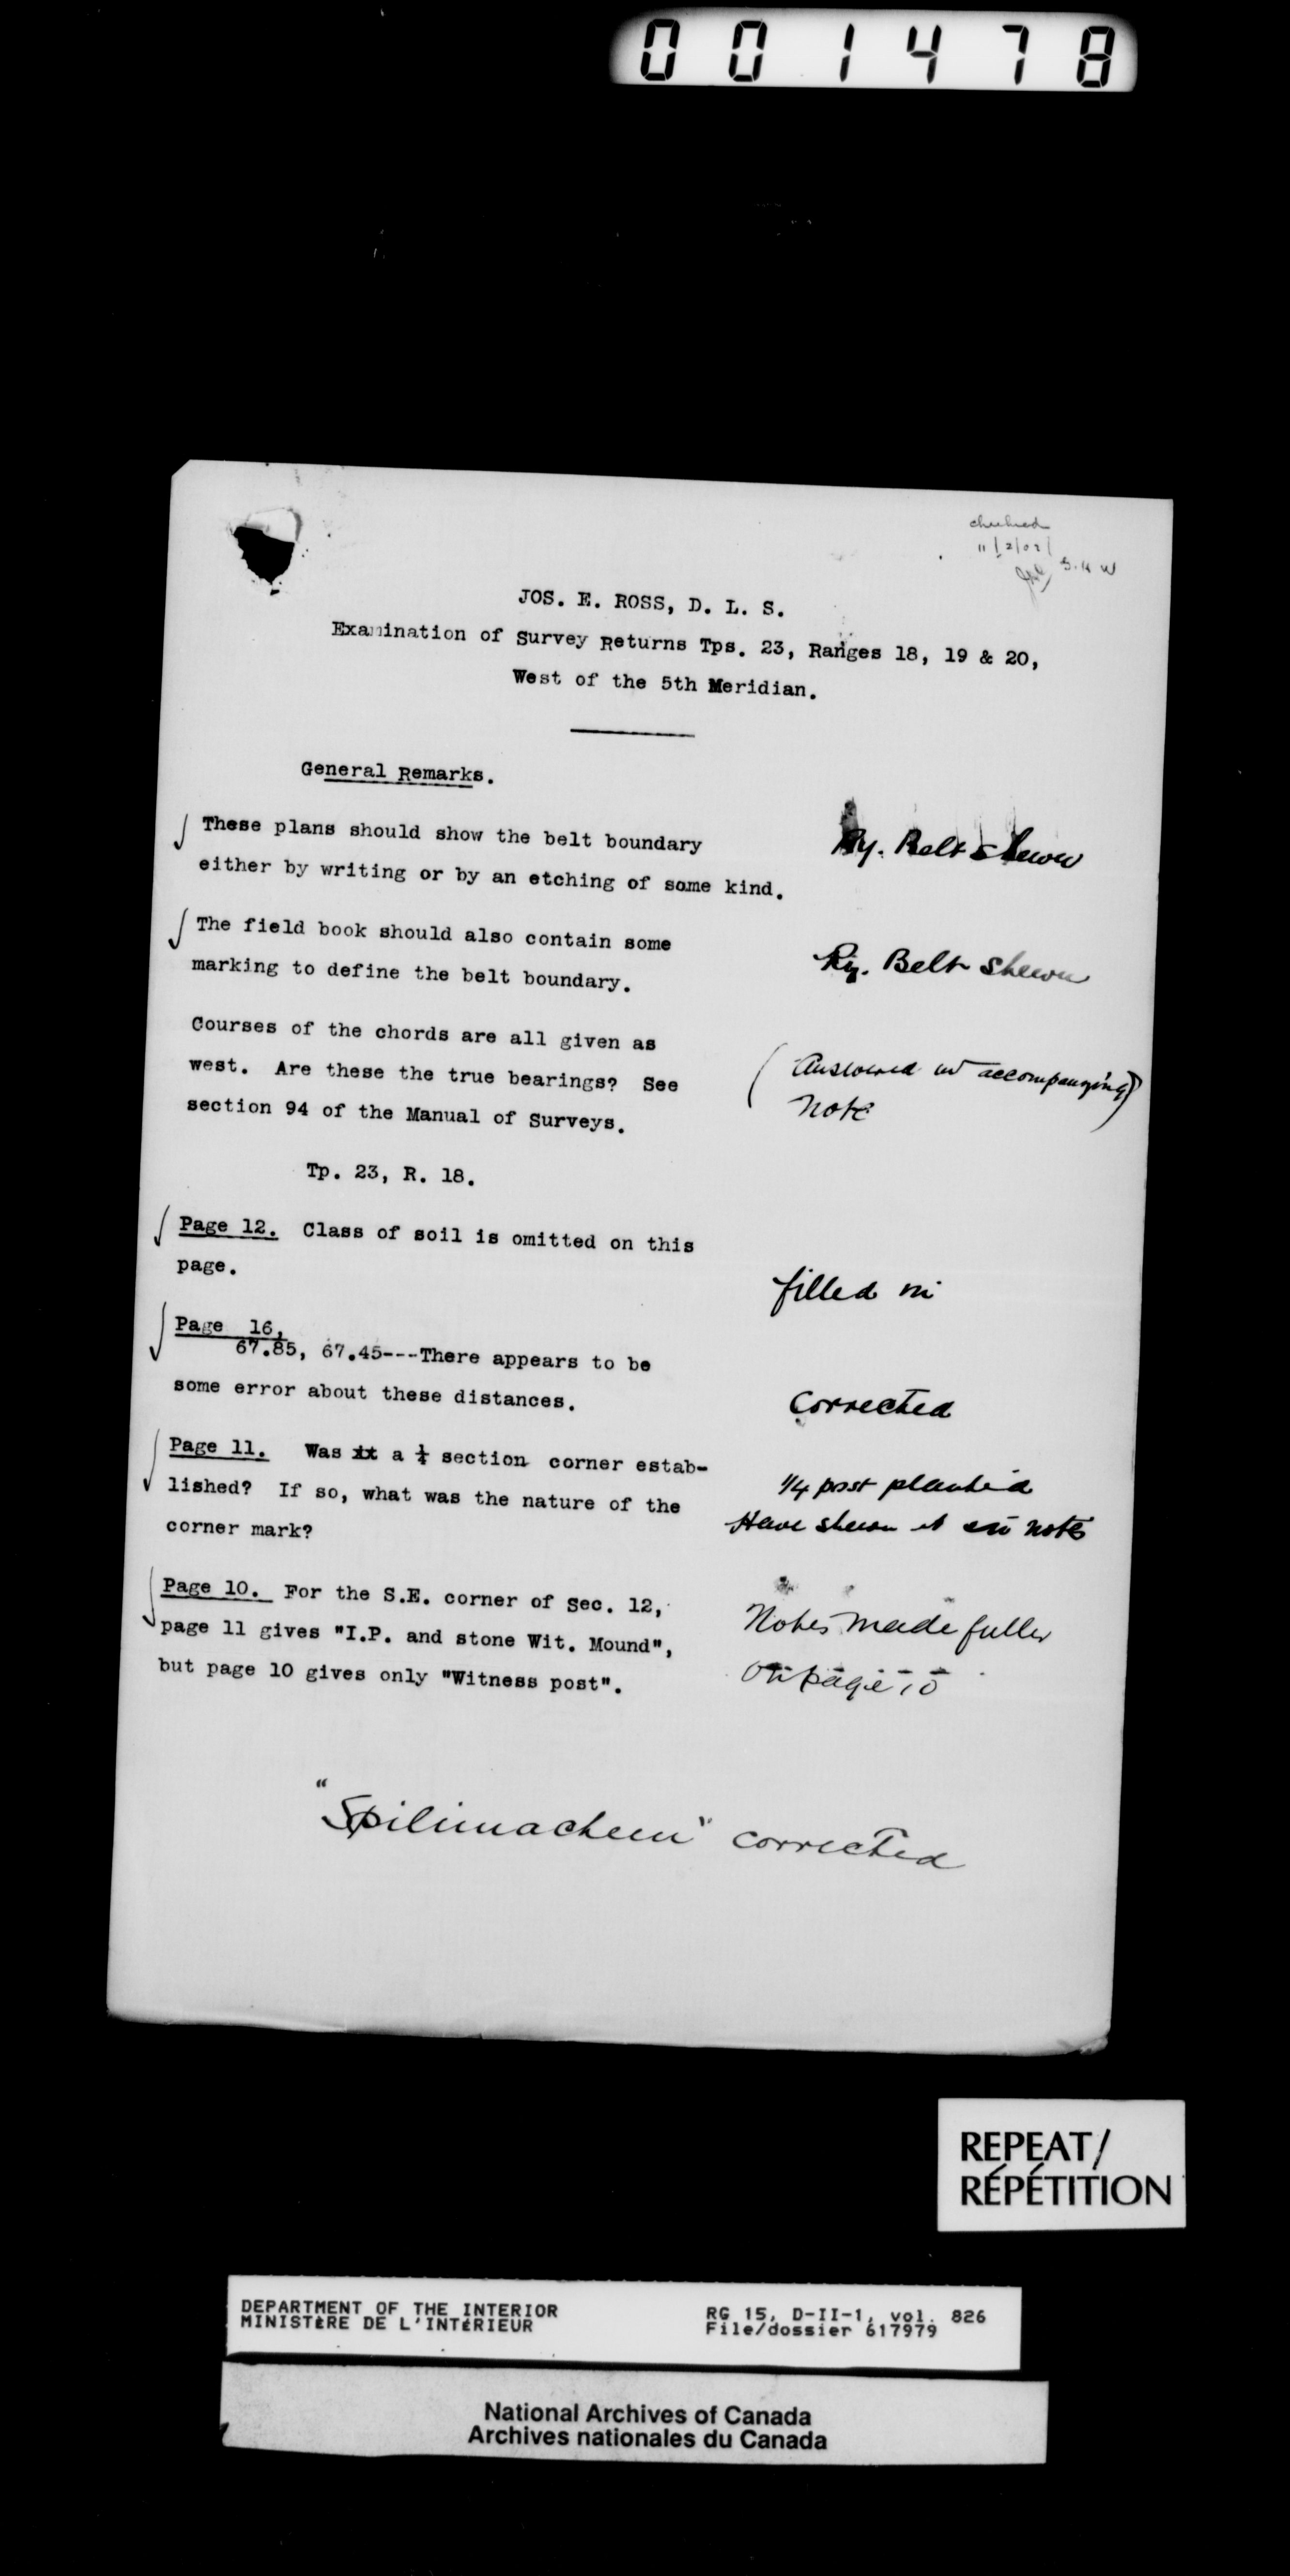 001478
checked
11/2/02
G.K W
JOS. E. ROSS, D. L. S.
Examination of Survey Returns Tps. 23, Ranges 18, 19 & 20,
West of the 5th Meridian.
General Remarks.
These plans should show the belt boundary
either by writing or by an etching of some kind.
Ry. Belt shewn
The field book should also contain some
marking to define the belt boundary.
Ry. Belt shewn
Courses of the chords are all given as
west. Are these the true bearings? See
section 94 of the Manual of Surveys.
(Answered in accompanying
Note)
Tp. 23, R. 18.
Page 12. Class of soil is omitted on this
page.
filled in
Page 16,
67.85, 67.45---There appears to be
some error about these distances.
Corrected
Page 11. Was it a ¼ section corner estab-
lished? If so, what was the nature of the
corner mark?
1/4 post planted
Have shewn it in notes
Page 10. For the S.E. corner of Sec. 12,
page 11 gives "I.P. and stone Wit. Mound",
but page 10 gives only "Witness post".
Notes made fuller
on page 10
"Spilimacheen" corrected
REPEAT/
RÉPÉTITION
DEPARTMENT OF THE INTERIOR
MINISTÈRE DE L'INTÉRIEUR
RG 15, D-II-1, vol. 826
File/dossier 617979
National Archives of Canada
Archives nationales du Canada